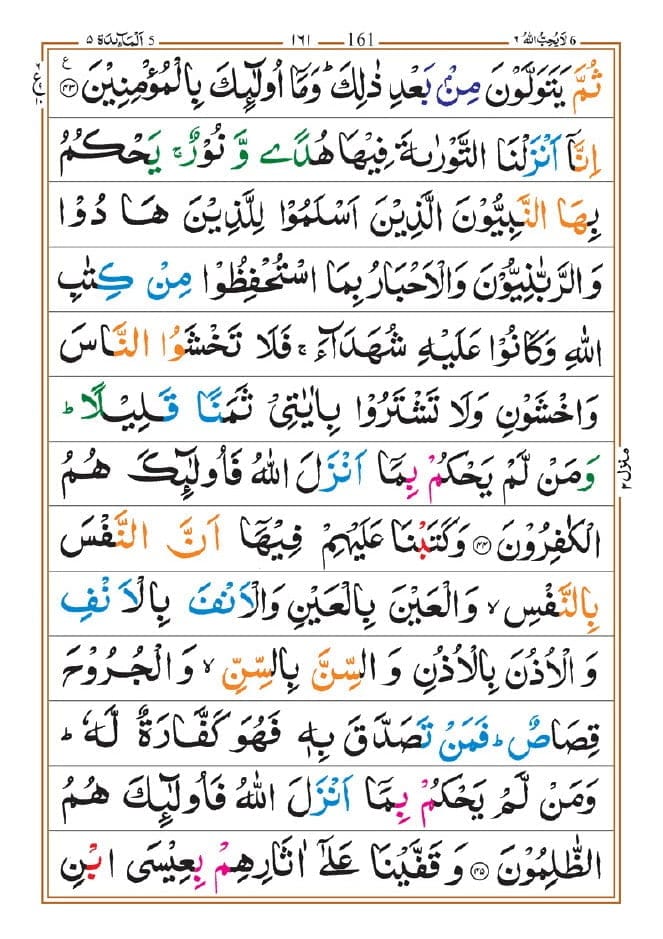 ٦ لَا يُحِبُّ اللّٰهُ 6
١٦١ 161
اَلْمَآئِدَة ٥ 5
ثُمَّ يَتَوَلَّوْنَ مِنْۢ بَعْدِ ذٰلِكَ ؕ وَمَاۤ اُولٰٓئِكَ بِالْمُؤْمِنِيْنَ ﴿۴۳﴾ ع
اِنَّاۤ اَنْزَلْنَا التَّوْرٰىةَ فِيْهَا هُدًى وَّ نُوْرٌ ۚ يَحْكُمُ
بِهَا النَّبِيُّوْنَ الَّذِيْنَ اَسْلَمُوْا لِلَّذِيْنَ هَادُوْا
وَالرَّبّٰنِيُّوْنَ وَالْاَحْبَارُ بِمَا اسْتُحْفِظُوْا مِنْ كِتٰبِ
اللّٰهِ وَكَانُوْا عَلَيْهِ شُهَدَآءَ ۚ فَلَا تَخْشَوُا النَّاسَ
وَاخْشَوْنِ وَلَا تَشْتَرُوْا بِاٰيٰتِيْ ثَمَنًا قَلِيْلًا ؕ
وَمَنْ لَّمْ يَحْكُمْ بِمَاۤ اَنْزَلَ اللّٰهُ فَاُولٰٓئِكَ هُمُ
الْكٰفِرُوْنَ ﴿۴۴﴾ وَكَتَبْنَا عَلَيْهِمْ فِيْهَاۤ اَنَّ النَّفْسَ
بِالنَّفْسِ ۙ وَالْعَيْنَ بِالْعَيْنِ وَالْاَنْفَ بِالْاَنْفِ
وَالْاُذُنَ بِالْاُذُنِ وَالسِّنَّ بِالسِّنِّ ۙ وَالْجُرُوْحَ
قِصَاصٌ ؕ فَمَنْ تَصَدَّقَ بِهٖ فَهُوَ كَفَّارَةٌ لَّهٗ ؕ
وَمَنْ لَّمْ يَحْكُمْ بِمَاۤ اَنْزَلَ اللّٰهُ فَاُولٰٓئِكَ هُمُ
الظّٰلِمُوْنَ ﴿۴۵﴾ وَقَفَّيْنَا عَلٰۤى اٰثَارِهِمْ بِعِيْسَى ابْنِ
منزل ٢